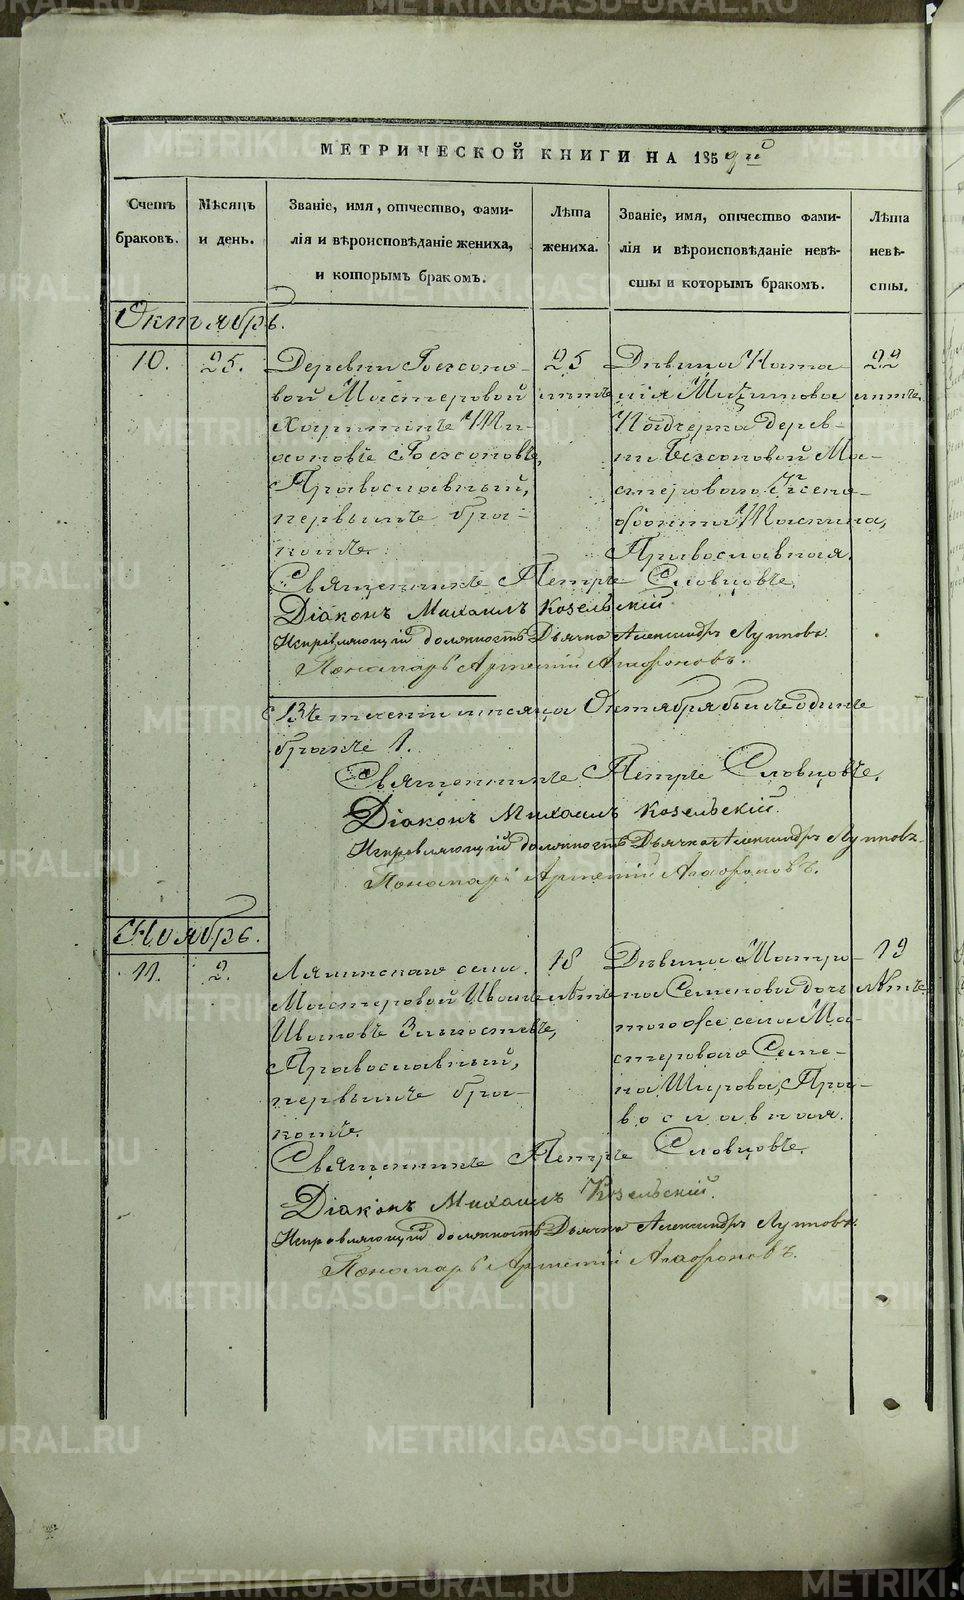 МЕТРИЧЕСКОЙ КНИГИ НА 1859й
Счетъ браковъ.
Мѣсяцъ и день.
Званіе, имя, отчество, фами-
лія и вѣроисповѣданіе жениха,
и которымъ бракомъ.
Лѣта
жениха.
Званіе, имя, отчество фами-
лія и вѣроисповѣданіе невѣ-
сты и которымъ бракомъ.
Лѣта
невѣ-
сты.
Октябрь.
10.
25.
Деревни Безсоно-
вой Мастеровой
Харитонъ
Безсоновъ,
Православный,
первымъ бра-
комъ.
25
лѣтъ
Дѣвица Ната-
лія
Падчерка дерев-
ни Безсоновой Ма-
стероваго Ксено-
фонта
Православная.
22
лѣтъ.
Священникъ Петръ Словцовъ.
Діаконъ Михаилъ Козельскій
Исправляющій должность Дьячка Александръ Лупповъ.
Пономарь Артемій Агафоновъ.
Въ теченіи мѣсяца Октября былъ одинъ
бракъ 1.
Священникъ Петръ Словцовъ.
Діаконъ Михаилъ Козельскій.
Исправляющій должность Дьячка Александръ Лупповъ.
Пономарь Артемій Агафоновъ.
Ноябрь.
11.
2.
Лялинскаго села.
Мастеровой Иванъ
Ивановъ
Православный,
первымъ бра-
комъ.
18
лѣтъ
Дѣвица Матро-
на Семенова дочь
того же села Ма-
стероваго Семе-
на Широва, Пра-
вославная.
19
лѣтъ
Священникъ Петръ Словцовъ.
Діаконъ Михаилъ Козельскій.
Исправляющій должность Дьячка Александръ Лупповъ.
Пономарь Артемій Агафоновъ.
METRIKI.GASO-URAL.RU